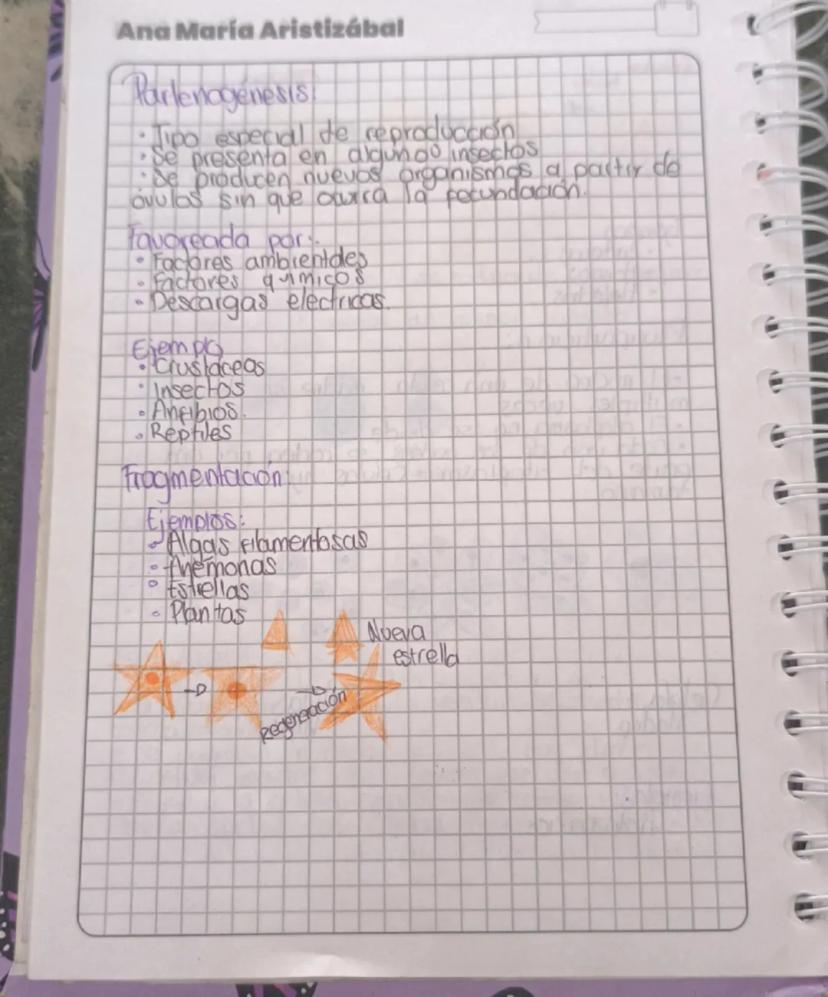 Ana María Aristizábal
Partenogénesis:
· Tipo especial de reproducción
· Se presenta en algunos insectos
· Se producen nuevos organismos a partir de
óvulos sin que ocurra la fecundación.
Favorecida por:
· Factores ambientales
· Factores químicos
· Descargas electricas.
Ejemplo
· Crustaceos
· Insectos
· Anfibios.
· Reptiles
Fragmentación:
Ejemplos:
· Algas filamentosas
· Anémonas
· Estrellas
· Plantas
Nueva
estrella
Regeneración